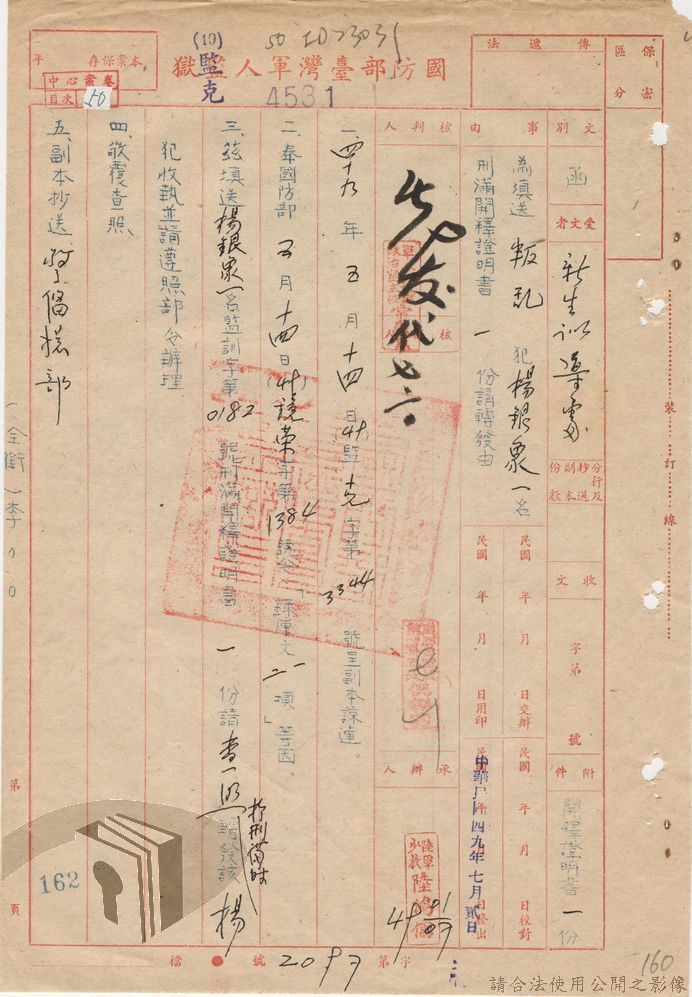 國防部臺灣軍人監獄
(19)
監克
4531
保密
區分
傳遞法
本案保存 年
中心案卷
目次 50
文別 函
受文者 新生訓導處
分行及抄送副本份數
收文 字第 號
附件 開釋證明書一份
事由
為填送 叛亂 犯 楊銀眾 一名
刑滿開釋證明書 一 份請轉發由
民國 年 月 日交辦
民國 年 月 日校對
民國 年 月 日用印
中華民國四九年七月貳日
核判人
代
承辦人
陸軍少校
一、四十九年五月十四日 監克字第 3344 號呈副本諒達。
二、奉國防部 五月 十四日 字第 1384 號令「錄原文一項」等因。
三、茲填送楊銀眾一名監訓字第 0182 號刑滿開釋證明書 一 份請查照 於刑滿時 轉發該 楊
犯收執並請遵照部令辦理
四、敬覆查照、
五、副本抄送 警備總部
(全銜)李○○
裝 訂 線
第 162 頁
檔 號 2097 字第
160
請合法使用公開之影像